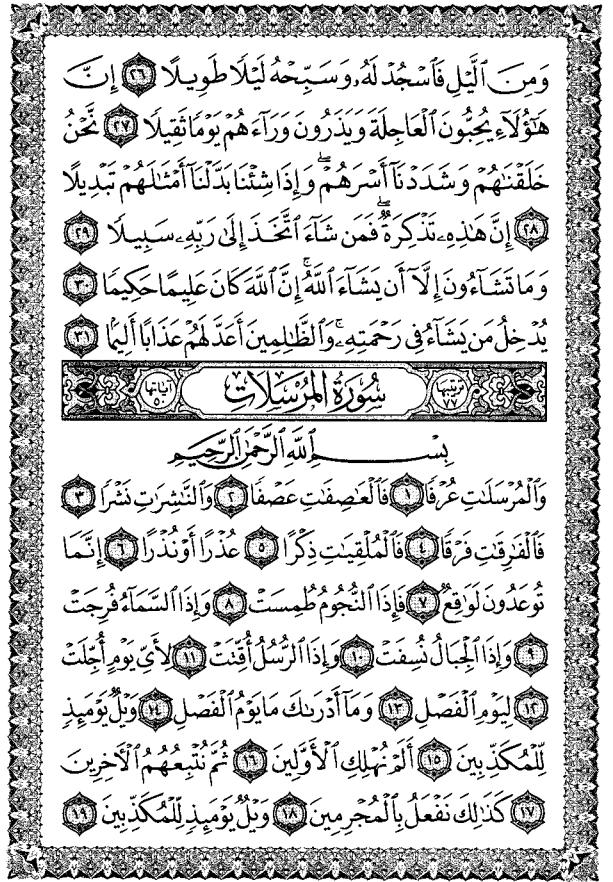 وَمِنَ ٱلَّيۡلِ فَٱسۡجُدۡ لَهُۥ وَسَبِّحۡهُ لَيۡلٗا طَوِيلًا ٢٦ إِنَّ
هَٰٓؤُلَآءِ يُحِبُّونَ ٱلۡعَاجِلَةَ وَيَذَرُونَ وَرَآءَهُمۡ يَوۡمٗا ثَقِيلٗا ٢٧ نَّحۡنُ
خَلَقۡنَٰهُمۡ وَشَدَدۡنَآ أَسۡرَهُمۡۖ وَإِذَا شِئۡنَا بَدَّلۡنَآ أَمۡثَٰلَهُمۡ تَبۡدِيلًا
٢٨ إِنَّ هَٰذِهِۦ تَذۡكِرَةٞۖ فَمَن شَآءَ ٱتَّخَذَ إِلَىٰ رَبِّهِۦ سَبِيلٗا ٢٩
وَمَا تَشَآءُونَ إِلَّآ أَن يَشَآءَ ٱللَّهُۚ إِنَّ ٱللَّهَ كَانَ عَلِيمًا حَكِيمٗا ٣٠
يُدۡخِلُ مَن يَشَآءُ فِي رَحۡمَتِهِۦۚ وَٱلظَّٰلِمِينَ أَعَدَّ لَهُمۡ عَذَابًا أَلِيمَۢا ٣١
ترتيبها ٧٧ سُورَةُ المُرْسَلات آياتها ٥٠
بِسۡمِ ٱللَّهِ ٱلرَّحۡمَٰنِ ٱلرَّحِيمِ
وَٱلۡمُرۡسَلَٰتِ عُرۡفٗا ١ فَٱلۡعَٰصِفَٰتِ عَصۡفٗا ٢ وَٱلنَّٰشِرَٰتِ نَشۡرٗا ٣
فَٱلۡفَٰرِقَٰتِ فَرۡقٗا ٤ فَٱلۡمُلۡقِيَٰتِ ذِكۡرًا ٥ عُذۡرًا أَوۡ نُذۡرًا ٦ إِنَّمَا
تُوعَدُونَ لَوَٰقِعٞ ٧ فَإِذَا ٱلنُّجُومُ طُمِسَتۡ ٨ وَإِذَا ٱلسَّمَآءُ فُرِجَتۡ
٩ وَإِذَا ٱلۡجِبَالُ نُسِفَتۡ ١٠ وَإِذَا ٱلرُّسُلُ أُقِّتَتۡ ١١ لِأَيِّ يَوۡمٍ أُجِّلَتۡ
١٢ لِيَوۡمِ ٱلۡفَصۡلِ ١٣ وَمَآ أَدۡرَىٰكَ مَا يَوۡمُ ٱلۡفَصۡلِ ١٤ وَيۡلٞ يَوۡمَئِذٖ
لِّلۡمُكَذِّبِينَ ١٥ أَلَمۡ نُهۡلِكِ ٱلۡأَوَّلِينَ ١٦ ثُمَّ نُتۡبِعُهُمُ ٱلۡأٓخِرِينَ
١٧ كَذَٰلِكَ نَفۡعَلُ بِٱلۡمُجۡرِمِينَ ١٨ وَيۡلٞ يَوۡمَئِذٖ لِّلۡمُكَذِّبِينَ ١٩